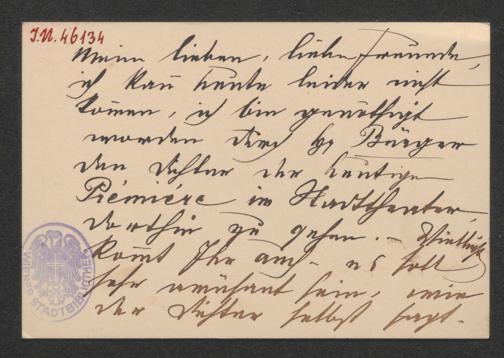 I.N. 46134
Meine lieben, lieben Freunde,
ich kan̄ heute leider nicht
kom̄en, ich bin genöthigt
worden durch H. Bürger
den Dichter der heutigen
Première im Stadttheater,
dorthin zu gehen. – Vielleicht
kom̄t Ihr auch – es soll
sehr amüsant sein, wie
der Dichter selbst sagt.
WIENER STADTBIBLIOTHEK